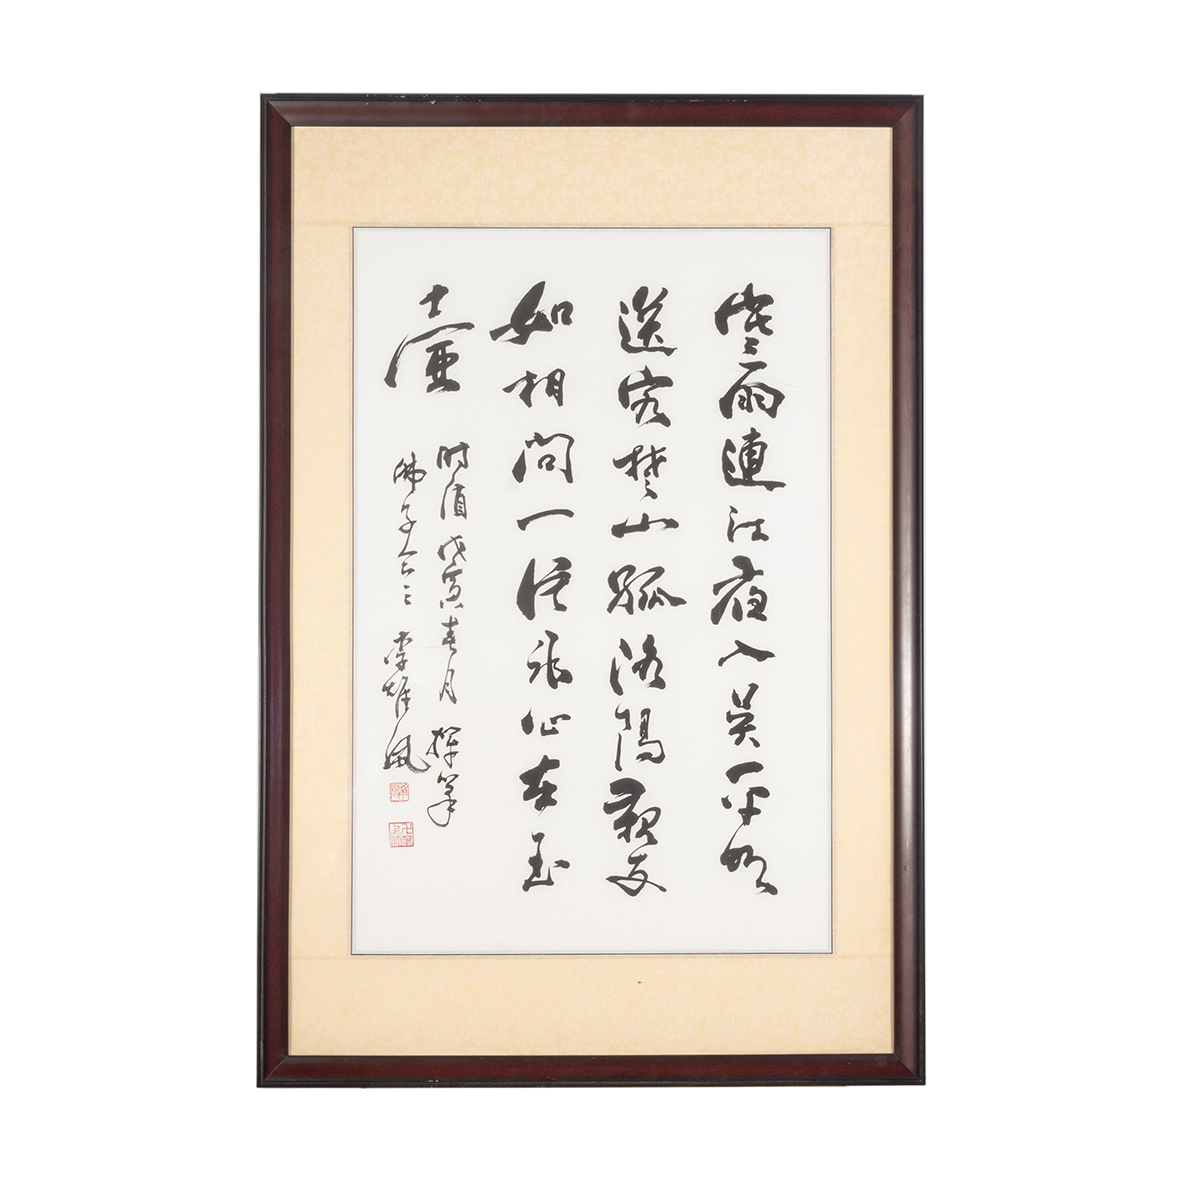 寒雨連江夜入吳平明
送客楚山孤洛陽親友
如相問一片冰心在玉
壺
時值戊寅春月揮筆
佛子人 李雄風